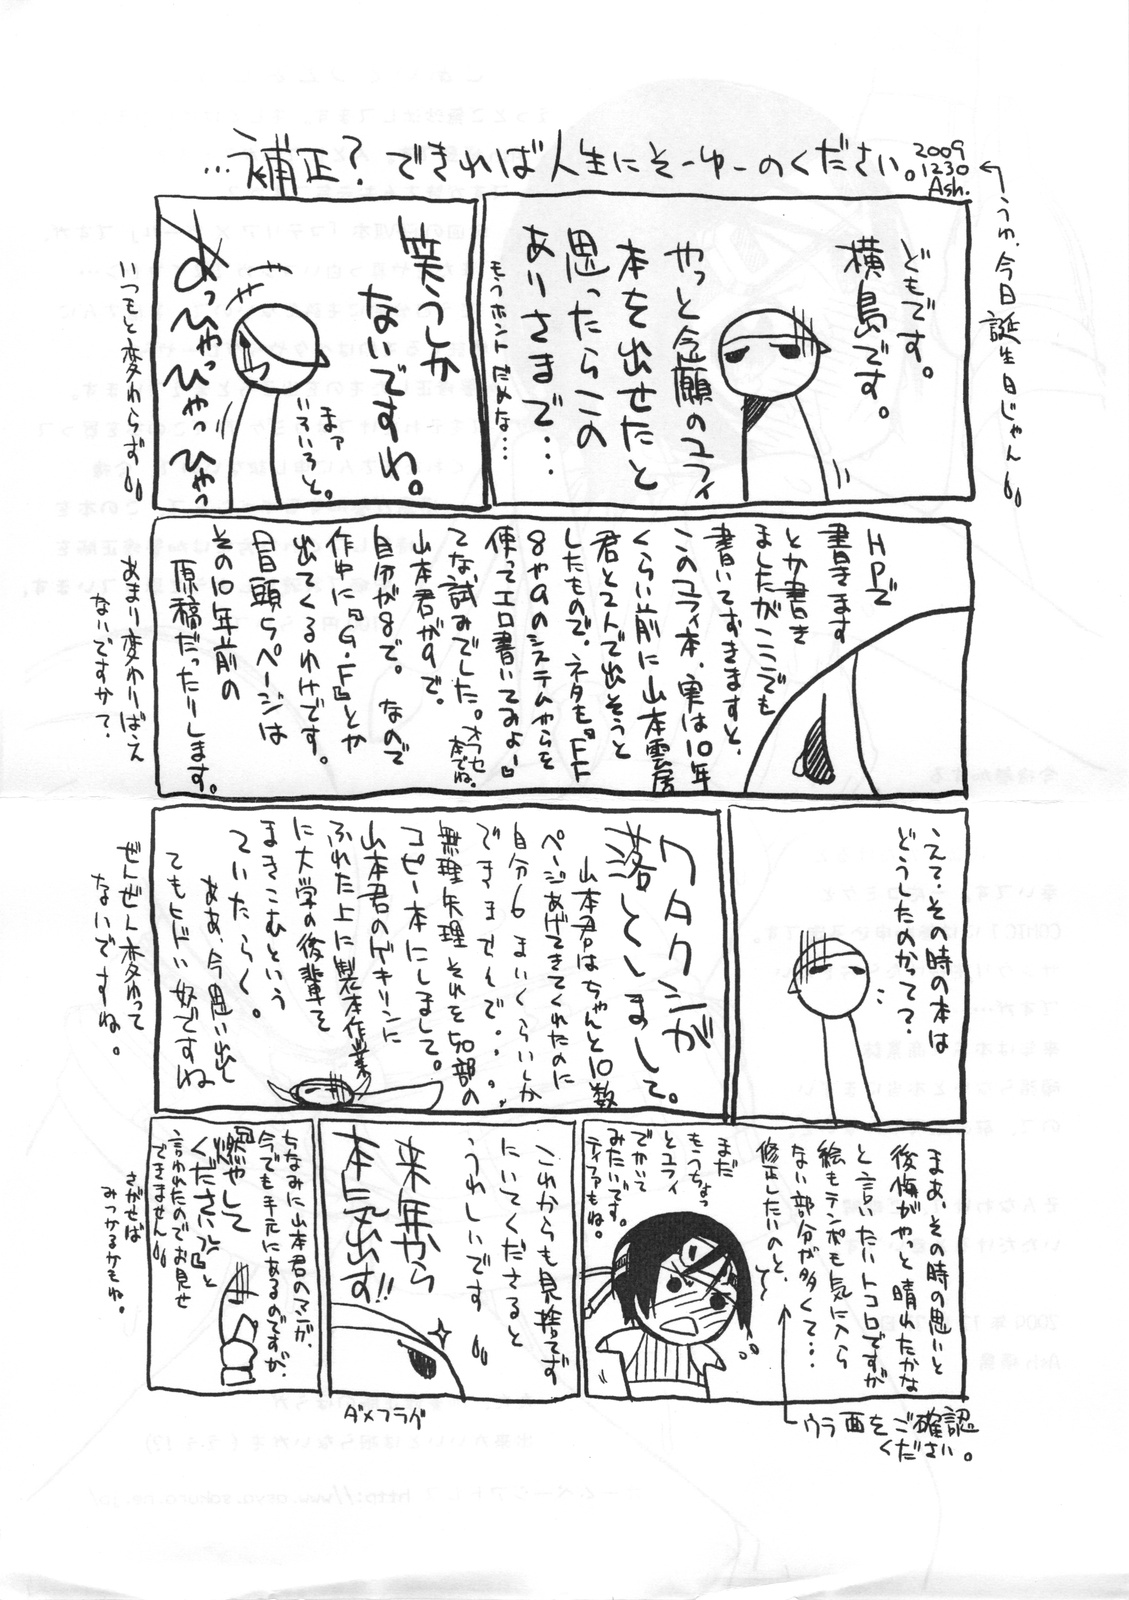 …う補正？できれば人生にそーゆーのください。
2009
1230
Ash.
←うわ、今日誕生日じゃん
どもです。
横島です。
やっと念願のユフィ
本を出せたと
思ったらこの
ありさまで…
もうホントだめな…
笑うしか
なですわ。
まァ
いろいろと。
あっひゃっひゃっひゃっ
いつもと変わらず
HPで
書きます
とか書き
ましたがここでも
書いてずきますと、
このユフィ本、実は10年
くらい前に山本雲居
君と2人で出そうと
したもので、ネタも『FF
8や9のシステムやらを
使ってエロ書いてみよー』
てな試みでした。
オフセ
本でね。
山本君が9で、
自分が8で。なので
作中に『G・F』とか
出てくるわけです。
冒頭らページは
その10年前の
原稿だったりします。
あまり変わりばえ
ないですか？
えて、その時の本は
どうしたのかって？
ワタクシが
落としまして。
山本君はちゃんと10数
ページあげてきてくれたのに
自分6まいくらいしか
できませんで、、、
無理矢理それを50部の
コピー本にしまして。
山本君のゲキリンに
ふれた上に製本作業
に大学の後輩を
まきこむという
ていたらく。
ああ、今思い出し
てもヒドい奴ですね
ぜんぜん変わって
ないですね。
まあ、その時の思いと
後悔がやっと晴れたかな
と言いたいトコロですが
絵もテンポも気に入ら
ない部分が多くて…
修正したいのと、
まだ
もうちょっ
とユフィ
でかいて
みたいです。
ティファもね。
ウラ面をご確認
ください。
これからも見捨てず
にいてくださると
うれしいです
来年から
本気出す!!
ダメフラグ
ちなみに山本君のマンガ、
今でも手元にあるのですが、
『燃やして
ください』と
言われたのでお見せ
できません
さがせば
みつかるかもね。